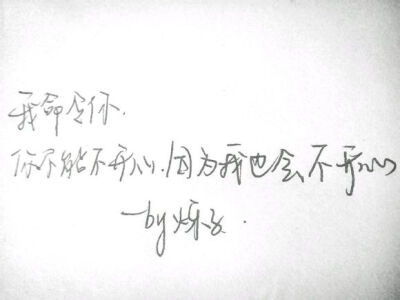 我命令你.
你不能不开心.因为我也会不开心
—by烁